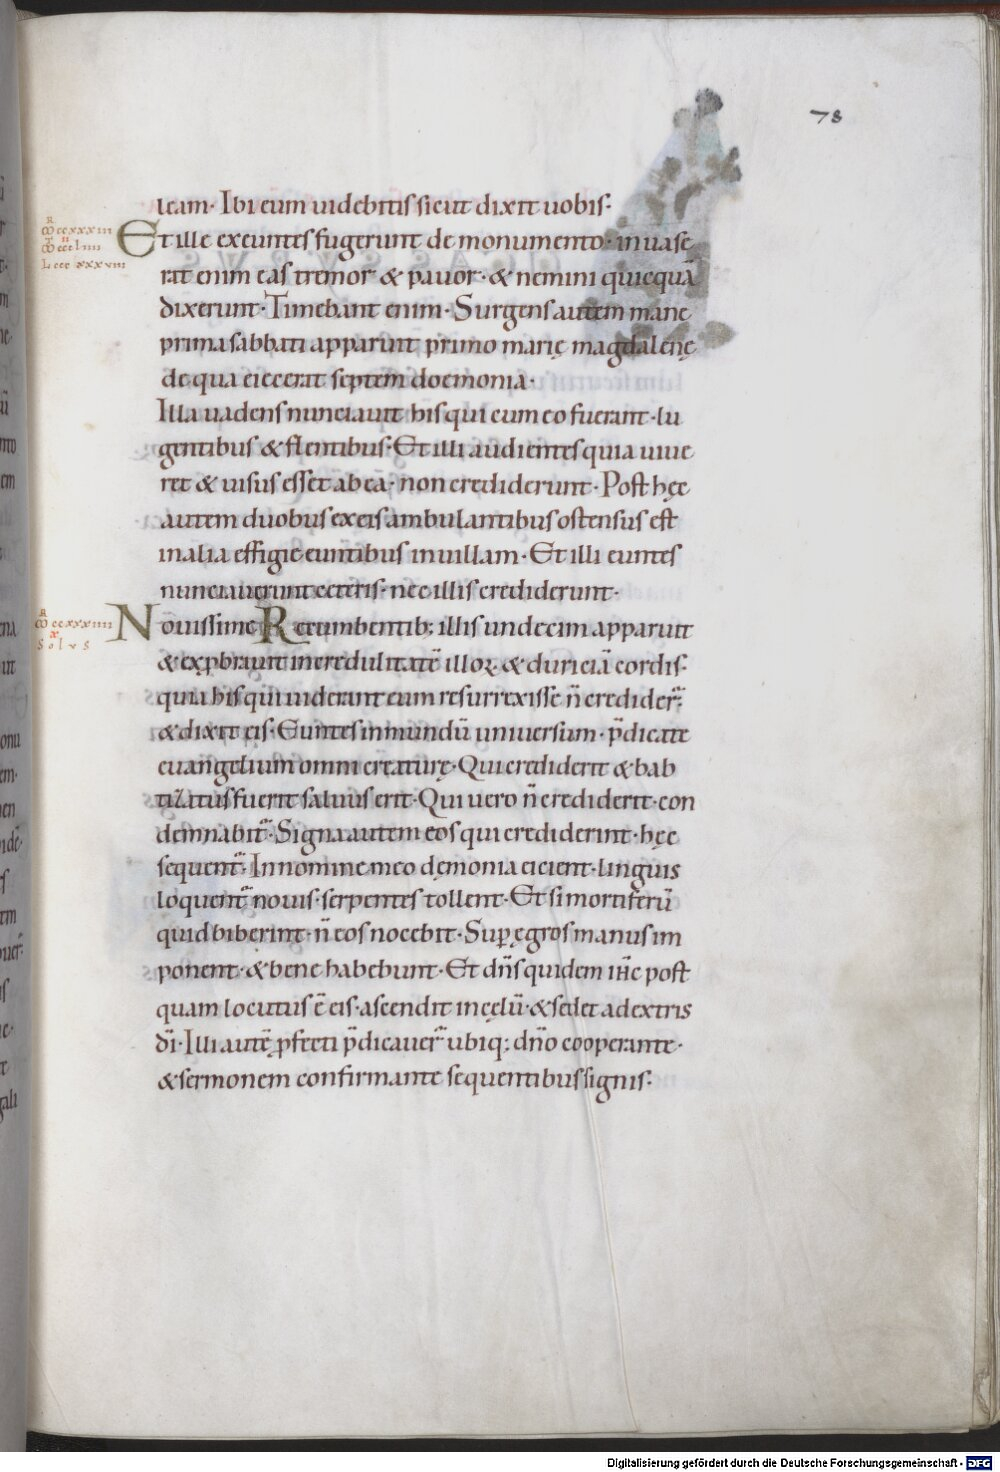 78
leam· Ibi eum uidebitis sicut dixit uobis·
Et ille exeuntes fugerunt de monumento· inuase
rat enim eas tremor & pauor· & nemini quicquā
dixerunt· Timebant enim· Surgens autem mane
prima sabbati apparuit primo marię magdalenę
de qua eiecerat septem doemonia·
Illa uadens nunciauit his qui cum eo fuerant· lu
gentibus & flentibus· Et illi audientes quia uiue
ret & uisus esset ab ea· non crediderunt· Post hęc
autem duobus ex eis ambulantibus ostensus est
in alia effigie euntibus in uillam· Et illi euntes
nunciauerunt ceteris· nec illis crediderunt·
Nouissime Recumbentib; illis undecim apparuit
& exprobrauit incredulitatē illoꝝ & duriciā cordis·
quia his qui uiderant eum resurrexisse n̄ crediderꝛ̄
& dixit eis· Euntes in mundū uniuersum· p̄dicate
euangelium omni creaturę· Qui crediderit & bab
tizatus fuerit saluus erit· Qui uero n̄ crediderit· con
demnabit̄· Signa autem eos qui crediderint· hęc
sequent̄· In nomine meo dęmonia eicient· linguis
loquent̄ nouis· serpentes tollent· Et si mortiferū
quid biberint· n̄ eos nocebit· Suꝑ ęgros manus im
ponent· & bene habebunt· Et dn̄s quidem ih̄c post
quam locutus ē eis· ascendit in cęlū· & sedet adextris
dī· Illi autē ꝓfecti p̄dicauer̄ ubiq; dn̄o cooperante·
& sermonem confirmante sequentibus signis·
Digitalisierung gefördert durch die Deutsche Forschungsgemeinschaft - DFG